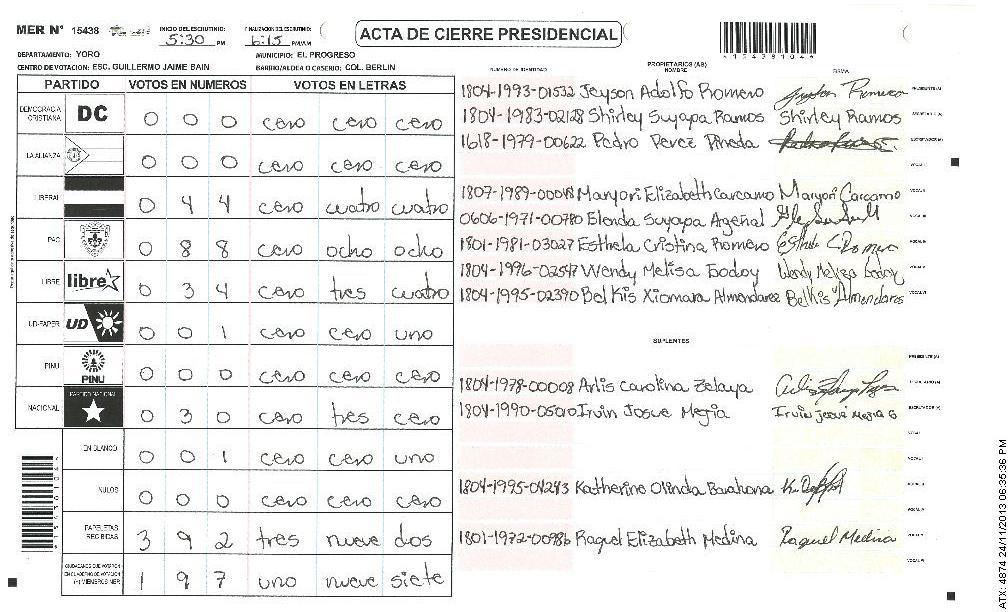 MER N° 15438
INICIO DEL ESCRUTINIO: 5:30 PM
FINALIZACION DEL ESCRUTINIO: 6:15 PM/AM
ACTA DE CIERRE PRESIDENCIAL
*154381046*
DEPARTAMENTO: YORO
MUNICIPIO: EL PROGRESO
CENTRO DE VOTACION: ESC. GUILLERMO JAIME BAIN
BARRIO/ALDEA O CASERIO: COL. BERLIN
PARTIDO VOTOS EN NUMEROS VOTOS EN LETRAS
DEMOCRACIA CRISTIANA DC 0 0 0 cero cero cero
LA ALIANZA 0 0 0 cero cero cero
LIBERAL 0 4 4 cero cuatro cuatro
PAC 0 8 8 cero ocho ocho
LIBRE libre 0 3 4 cero tres cuatro
UD-FAPER UD 0 0 1 cero cero uno
PINU PINU 0 0 0 cero cero cero
NACIONAL PARTIDO NACIONAL 0 3 0 cero tres cero
EN BLANCO 0 0 1 cero cero uno
NULOS 0 0 0 cero cero cero
PAPELETAS RECIBIDAS 3 9 2 tres nueve dos
CIUDADANOS QUE VOTARON EN CUADERNO DE VOTACION (+) MIEMBROS MER 1 9 7 uno nueve siete
NUMERO DE IDENTIDAD PROPIETARIOS (AS) NOMBRE FIRMA
1804-1993-01532 Jeyson Adolfo Romero PRESIDENTE (A)
1804-1983-02128 Shirley Suyapa Ramos Shirley Ramos SECRETARIO (A)
1618-1979-00622 Pedro Perez Pineda ESCRUTADOR (A)
VOCAL I
1807-1989-00048 Maryori Elizabeth Carcamo Maryori Carcamo VOCAL II
0606-1971-00780 Elenda Suyapa VOCAL III
1801-1981-03027 Esthela Cristina Romero VOCAL IV
1804-1996-02547 Wendy Melisa Godoy Wendy Melisa Godoy VOCAL V
1804-1995-02390 Belkis Xiomara Almendarez Belkis Almendares VOCAL VI
SUPLENTES
PRESIDENTE (A)
1804-1978-00008 Arlis Carolina Zelaya SECRETARIO (A)
1804-1990-05010 Irvin Josue Megia Irvin Josue Megia G ESCRUTADOR (A)
VOCAL I
VOCAL II
1804-1995-04243 Katherine Olinda Barahona VOCAL III
VOCAL IV
1801-1972-00986 Raquel Elizabeth Medina Raquel Medina VOCAL V
VOCAL VI
ATX: 4874 24/11/2013 06:35:36 PM